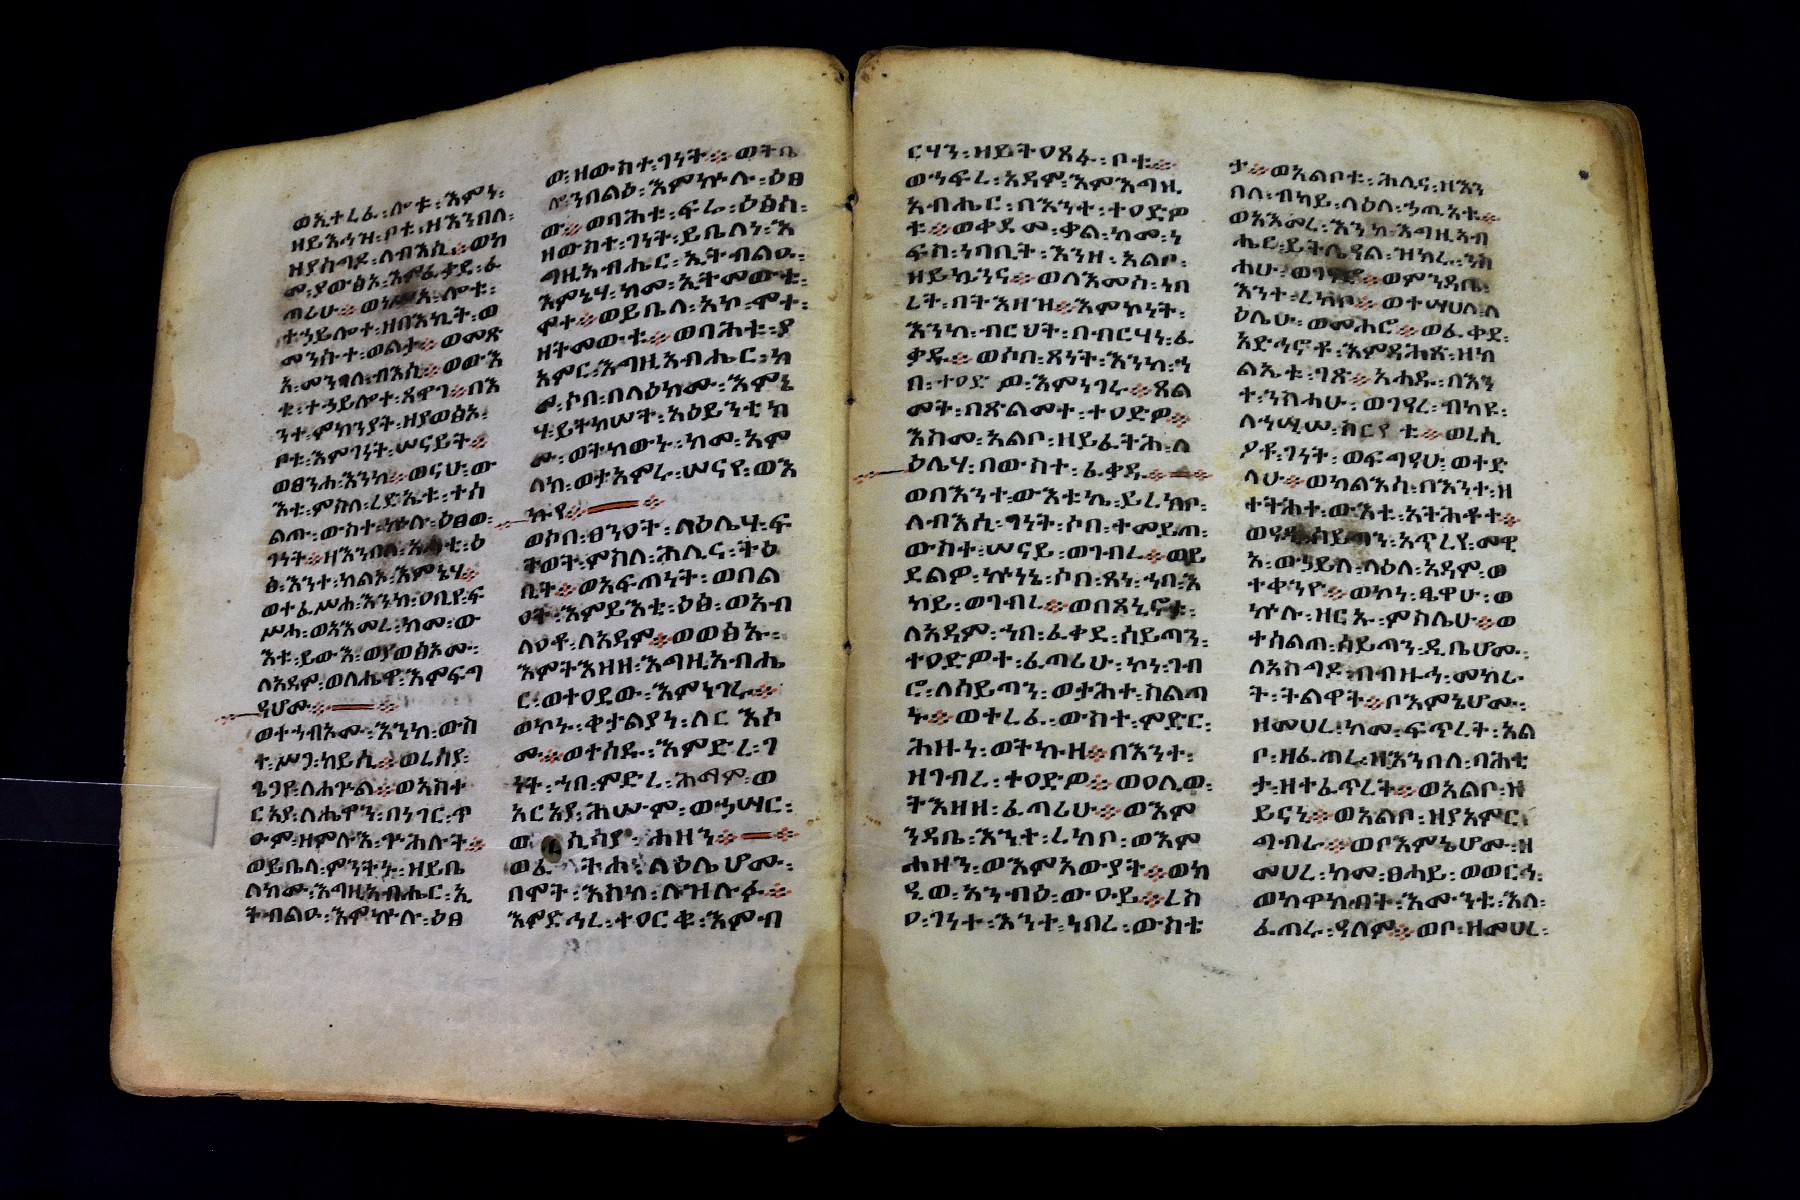 ወኢተረፈ፡ሎቱ፡እምነ፡
ዘይእኅዝ፡ቦቱ፡ዘእንበለ፡
ዘያስጣዶ፡ለብእሲ፨ወከ
መ፡ያውፅአ፡እምፈቃደ፡ፈ
ጣሪሁ፨ወነሥአ፡ሎቱ፡
ተኃይሎተ፡ዘበእኪት፡ወ
መንስተ፡ወልታ፨ወመጽ
አ፡መንገለ፡ብእሲ፨ወውእ
ቱ፡ተኃይሎተ፡ጸዋገ፨በእ
ንተ፡ምክንያት፡ዘያወፅአ፡
ቦቱ፡እምገነት፡ሠናይት፨
ወፀንሐ፡እንከ፨ወናሁ፡ው
እቱ፡ምስለ፡ረድኤቱ፡ተስ
ልጡ፡ውስተ፡ኵሉ፡ዕፀወ፡
ገነት፨ዘእንበለ፡አሐቲ፡ዕ
ፅ፡እንተ፡ከልአ፡እምኔሃ፨
ወተፈሥሐ፡እንከ፡ዐቢየ፡ፍ
ሥሐ፡ወአእመረ፡ከመ፡ው
እቱ፡ይውእ፡ወያወፅአሙ፡
ለአዳም፡ወለሔዋ፡እምፍግ
ዓሆሙ፨
ወተኀብአሙ፡እንከ፡ውስ
ተ፡ሥጋ፡ከይሲ፨ወረሰያ፡
ጌጋየ፡ለሐጕል፨ወአስተ
ርአያ፡ለሔዋን፡በነገር፡ጥ
ዑም፡ዘምሉእ፡ጕሕሉት፨
ወይቤላ፡ምንትኑ፡ዘይቤ
ለክሙ፡እግዚአብሔር፡ኢ
ትብልዑ፡እምኵሉ፡ዕፀ
ው፡ዘውስተ፡ገነት፨ወትቤ
ሎ፡ንበልዕ፡እምኵሉ፡ዕፀ
ው፨ወባሕቱ፡ፍሬ፡ዕፅከ፡
ዘውስተ፡ገነት፡ይቤለነ፡እ
ግዚአብሔር፡ኢትብልዑ፡
እምኔሃ፡ከመ፡ኢትመውቱ፡
ሞተ፨ወይቤላ፡አኮ፡ሞተ፡
ዘትመውቱ፨ወባሕቱ፡ያ
አምር፡እግዚአብሔር፡ከ
መ፡ሶበ፡በላዕክሙ፡እምኔ
ሃ፡ይትከሠት፡አዕይንቲክ
ሙ፡ወትከውኑ፡ከመ፡አም
ላክ፡ወታአምሩ፡ሠናየ፡ወእ
ኩየ፨
ወሶበ፡ፀንዐት፡ላዕሌሃ፡ፍ
ትወት፡ምስለ፡ሕሊና፡ትዕ
ቢት፨ወአፍጠነት፡ወበል
ዐት፡እምይእቲ፡ዕፅ፡ወአብ
ልዐቶ፡ለአዳም፨ወወፅኡ፡
እምትእዘዘ፡እግዚአብሔ
ር፡ወተዐደው፡እምነገሩ፨
ወኮኑ፡ቀታልያነ፡ለርእሶ
ሙ፨ወተሰዱ፡እምድረ፡ገ
ነት፡ኀበ፡ምድረ፡ሕማም፡ወ
አርአያ፡ሕሡም፡ወኃሣር፡
ሲሳያ፡ሐዘን፨
ትሐ፡ላዕሌሆሙ፡
በሞት፡እስከ፡ሉዝሉፉ፨
እምድኅረ፡ተዐርቁ፡እምብ
ርሃን፡ዘይትዐጸፉ፡ቦቱ፨
ወኀፍረ፡አዳም፡እምእግዚ
አብሔር፡በእንተ፡ተዐድዎ
ቱ፨ወቀደመ፡ቃል፡ከመ፡ነ
ፍስ፡ነባቢት፡እንዘ፡አልቦ፡
ዘይኴንና፨ወለእመሰ፡ነበ
ረት፡በትእዘዝ፨እምኮነት፡
እንከ፡ብርህት፡በብርሃነ፡ፈ
ቃዱ፨ወሶበ፡ጸነት፡እንከ፡ኀ
በ፡ተዐድዎ፡እምነገሩ፨ጸል
መት፡በጽልመተ፡ተዐድዎ፨
እስመ፡አልቦ፡ዘይፈትሕ፡ላ
ዕሌሃ፡በውስተ፡ፈቃዳ፨
ወበእንተ፡ውእቱኬ፡ይረክቦ፡
ለብእሲ፡ግነት፡ሶበ፡ተመይጠ፡
ውስተ፡ሠናይ፡ወገብረ፨ወይ
ደልዎ፡ኵነኔ፡ሶበ፡ጸነ፡ኀበ፡እ
ከይ፡ወገብረ፨ወበጸኒኖቱ፡
ለአዳም፡ኀበ፡ፈቀደ፡ሰይጣን፡
ተዐድዎተ፡ፈጣሪሁ፡ኮነ፡ገብ
ሮ፡ለሰይጣን፡ወታሕተ፡ስልጣ
ኑ፨ወተረፈ፡ውስተ፡ምድር፡
ሕዙነ፡ወትኩዘ፨በእንተ፡
ዘገብረ፡ተዐድዎ፨ወዐሊወ፡
ትእዘዘ፡ፈጣሪሁ፨ወእም
ንዳቤ፡እንተ፡ረከቦ፡ወእም
ሐዘን፡ወእምአውያት፨ወከ
ዲወ፡አንብዕ፡ውዑይ፨ረስ
ዐ፡ገነተ፡እንተ፡ነበረ፡ውስቴ
ታ፨ወአልቦቱ፡ሕሊና፡ዘእን
በለ፡ብካይ፡ላዕለ፡ኃጢአቱ፨
ወአእመረ፡እንከ፡እግዚአብ
ሔር፡ይትሌዓል፡ዝክረ፡ንስ
ሐሁ፡ወገዓሮ፨ወምንዳቤ፡
እንተ፡ረከቦ፨ወተሣሀለ፡ላ
ዕሌሁ፡ወመሐሮ፨ወፈቀደ፡
አድኅኖቶ፡እምዳሕፀ፡ዘከ
ልኤቱ፡ገጽ፨አሐዱ፡በእን
ተ፡ንስሓሁ፡ወገዓረ፡ብካዩ፡
ለኀሢሠ፡ስርየቱ፨ወረሲ
ዖቶ፡ገነት፡ወፍግዓሁ፡ወተድ
ላሁ፨ወካልእሰ፡በእንተ፡ዘ
ተትሕተ፡ውእቱ፡አትሕቶተ፨
ወዓዲ፡ሰይጣን፡አጥረየ፡መዊ
አ፡ወኃይለ፡ላዕለ፡አዳም፡ወ
ተቀንየ፨ወኮነ፡ፄዋሁ፡ወ
ኵሉ፡ዘርኡ፡ምስሌሁ፨ወ
ተስልጠ፡ሰይጣን፡ዲቤሆሙ፡
ለአስግዶ፡ብብዙኅ፡መከራ
ት፡ትልዋት፨ቦእምኔሆሙ፡
ዘመሀረ፡ከመ፡ፍጥረት፡አል
ቦ፡ዘፈጠረ፡ዘእንበለ፡ባሕቲ
ታ፡ዘተፈጥረት፨ወአልቦ፡ዘ
ይኳኒ፨ወአልቦ፡ዘያአምር፡
ግብራ፨ወቦእምኔሆሙ፡ዘ
መሀረ፡ከመ፡ፀሐይ፡ወወርኅ፡
ወከዋክብት፡እሙንቱ፡እለ፡
ፈጠሩ፡ዓለም፨ወቦ፡ዘመሀረ፡